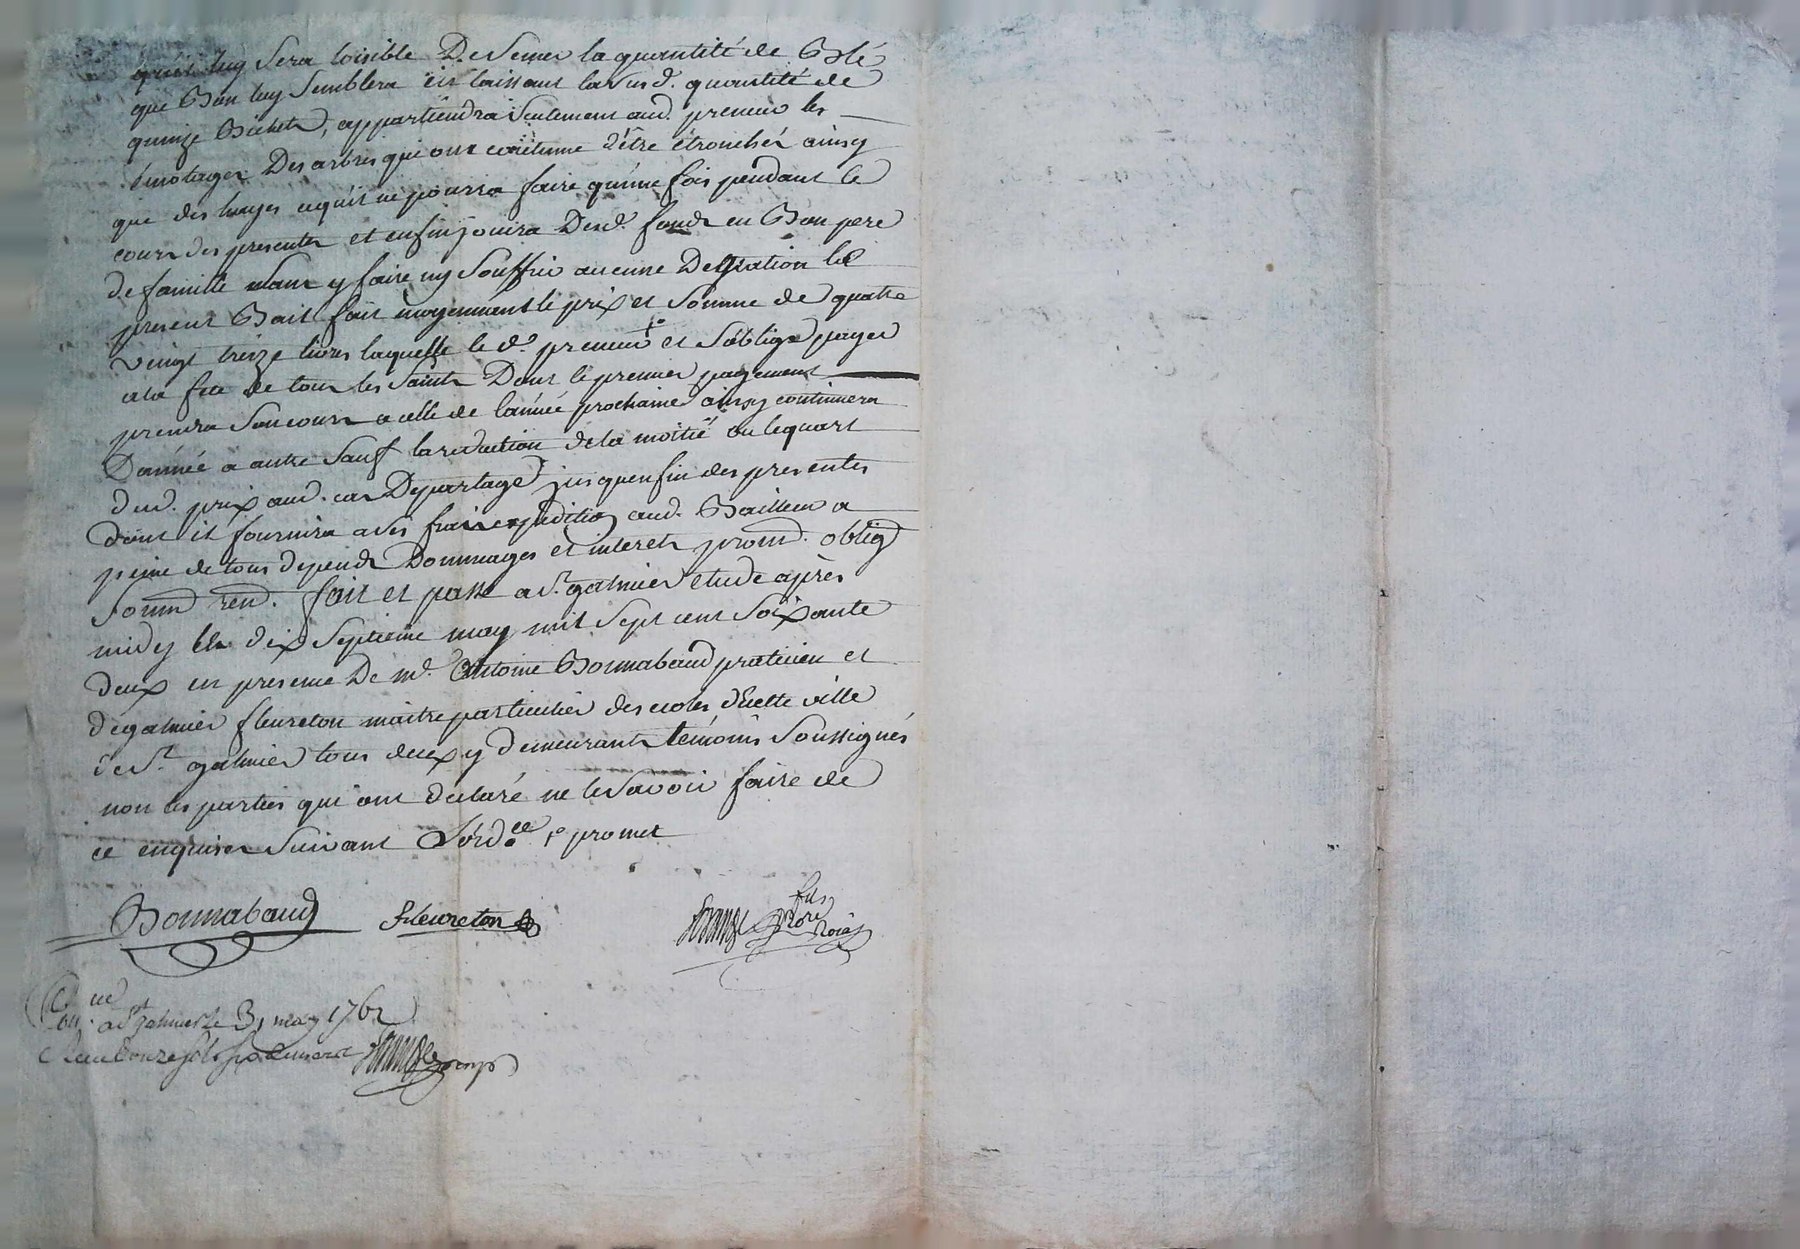 qu'il luy sera loisible De semer la quantité de Blé
que Bon luy semblera en laissant la susd. quantité de
quinze Bichets, appartiendra seulement aud. preneur les
émotages Des arbres qui ont coutume d'être étronchés ainsy
que des hayes ce qu'il ne pourra faire qu'une fois pendant le
cours des presentes et enfin jouira Desd. fonds en Bon pere
De famille sans y faire ny souffrir aucune Degration le
present Bail fait moyennent le prix et somme de quatre
vingt treize livres laquelle le d. preneur et s'oblige payer
a la fete de tous les saints Dont le premier payement
prendra son cours a celle de l'année prochaine ainsy continuera
D'année a autre sauf la reduction de la moitié ou le quart
dud. prix aud. cas De partage jusqu'en fin des presentes
dont il fournira a ses frais expedition aud. Bailleur a
peine de tous depends Dommages et interets prom. oblig
soum ren. fait et passé a St galmier étude après
midy le dix septieme may mil sept cent soixante
deux en presence De me. Antoine Bonnabaud praticien et
de galmier fleureton maitre particulier des ecoles d'icelle ville
de St galmier tous deux y demeurants témoins soussignés
non les parties qui ont déclaré ne le savoir faire de
ce enquises suivant L'ord.ce promet
Bonnabaud fleureton
fils
not. Royal
a St galmier le 31 may 1762
Reçu douze sols